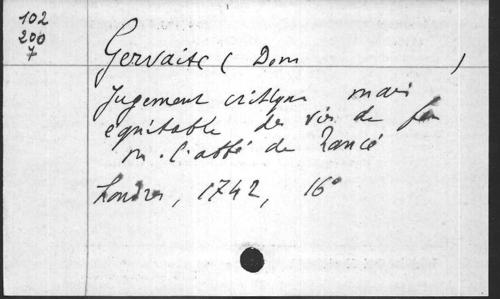 102
200
7
Gervaise (Dom )
Jugement critique mais
équitable des vies de feu
m. l'abbé de Rancé
Londres, 1742, 16°